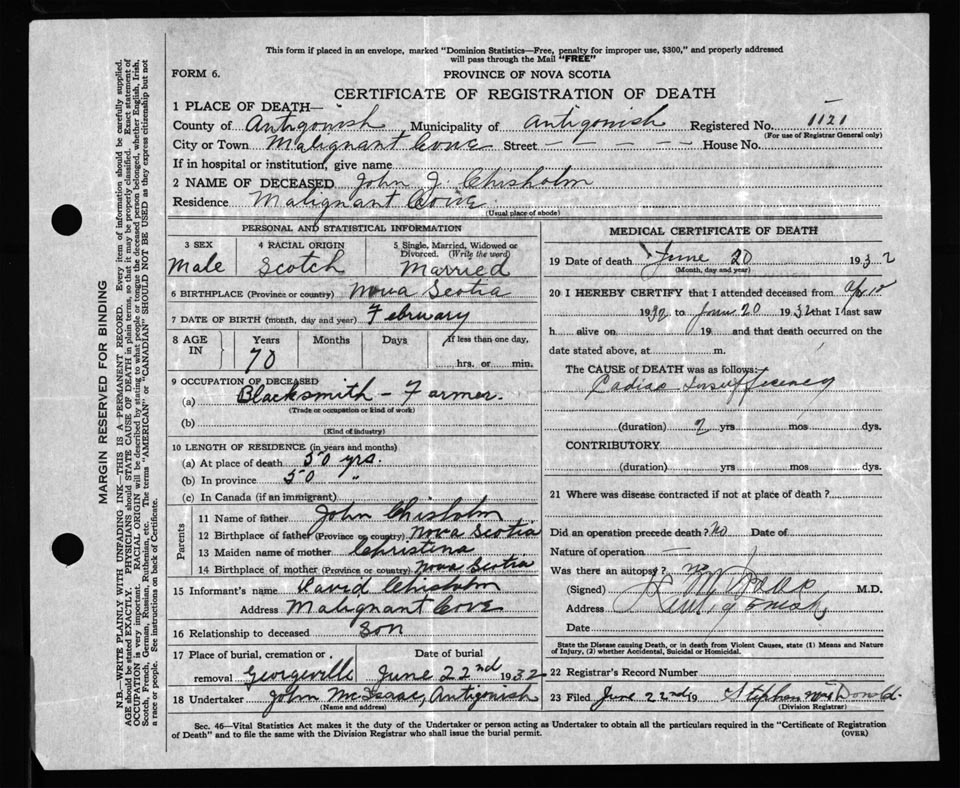 This form if placed in an envelope, marked "Dominion Statistics—Free, penalty for improper use, $300," and properly addressed
will pass through the Mail "FREE"
FORM 6.
PROVINCE OF NOVA SCOTIA
CERTIFICATE OF REGISTRATION OF DEATH
1 PLACE OF DEATH—
County of Antigonish Municipality of Antigonish Registered No. 1121
(For use of Registrar General only)
City or Town Malignant Cove Street — — — — — House No.
If in hospital or institution, give name
2 NAME OF DECEASED John J. Chisholm
Residence Malignant Cove
(Usual place of abode)
PERSONAL AND STATISTICAL INFORMATION
3 SEX 4 RACIAL ORIGIN 5 Single, Married, Widowed or
Divorced. (Write the word)
Male Scotch Married
6 BIRTHPLACE (Province or country) Nova Scotia
7 DATE OF BIRTH (month, day and year) February
8 AGE IN Years Months Days If less than one day,
70 hrs. or min.
9 OCCUPATION OF DECEASED
(a) Blacksmith - Farmer.
(Trade or occupation or kind of work)
(b)
(Kind of industry)
10 LENGTH OF RESIDENCE (in years and months)
(a) At place of death 50 yrs.
(b) In province 50 "
(c) In Canada (if an immigrant)
Parents
11 Name of father John Chisholm
12 Birthplace of father (Province or country) Nova Scotia
13 Maiden name of mother Christena
14 Birthplace of mother (Province or country) Nova Scotia
15 Informant's name David Chisholm
Address Malignant Cove
16 Relationship to deceased Son
17 Place of burial, cremation or removal Date of burial
Georgeville June 22nd 1932
18 Undertaker John McIsaac, Antigonish
(Name and address)
MEDICAL CERTIFICATE OF DEATH
19 Date of death June 20 1932
(Month, day and year)
20 I HEREBY CERTIFY that I attended deceased from Apr 10
1932 to June 20 1932 that I last saw
h alive on 19 and that death occurred on
date stated above, at m.
The CAUSE of DEATH was as follows:
Cadiac Insufficiency
(duration) 2 yrs mos dys.
CONTRIBUTORY
(duration) yrs mos dys.
21 Where was disease contracted if not at place of death?
Did an operation precede death? No Date of
Nature of operation —
Was there an autopsy? no
(Signed) M.D.
Address Antigonish
Date
State the Disease causing Death, or in death from Violent Causes, state (1) Means and
Nature of Injury, (2) whether Accidental, Suicidal or Homicidal.
22 Registrar's Record Number
23 Filed June 22nd 19 Stephen McDonald.
(Division Registrar)
Sec. 46—Vital Statistics Act makes it the duty of the Undertaker or person acting as Undertaker to obtain all the particulars required in the "Certificate of Registration
of Death" and to file the same with the Division Registrar who shall issue the burial permit. (OVER)
MARGIN RESERVED FOR BINDING
N.B.—WRITE PLAINLY WITH UNFADING INK—THIS IS A PERMANENT RECORD. Every item of information should be carefully supplied.
AGE should be stated EXACTLY. PHYSICIANS should STATE CAUSE OF DEATH in plain terms, so that it may be properly classified. Exact statement of
OCCUPATION is very important. RACIAL ORIGIN will be described by stating to what people or tongue the deceased person belonged, whether English, Irish,
Scotch, French, German, Russian, Ruthenian, etc. The terms "AMERICAN" or "CANADIAN" SHOULD NOT BE USED as they express citizenship but not
a race or people. See instructions on back of Certificate.